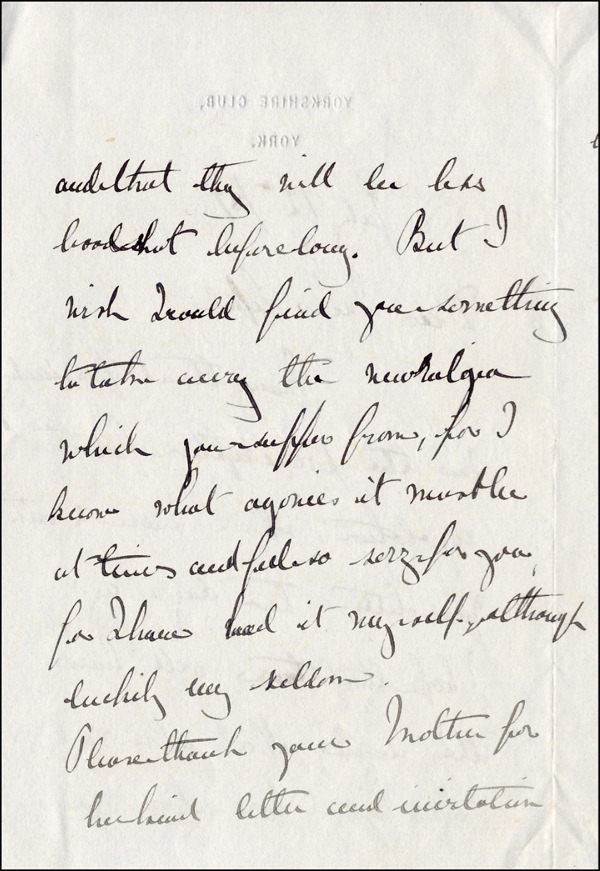 YORKSHIRE CLUB,
YORK.
and that they will be less
bloodshot before long. But I
wish I could find you something
to take away the neuralgia
which you suffer from, for I
know what agonies it must be
at times and feel so sorry for you,
for I have had it myself, although
luckily very seldom.
Please thank your Mother for
her kind letter and invitation